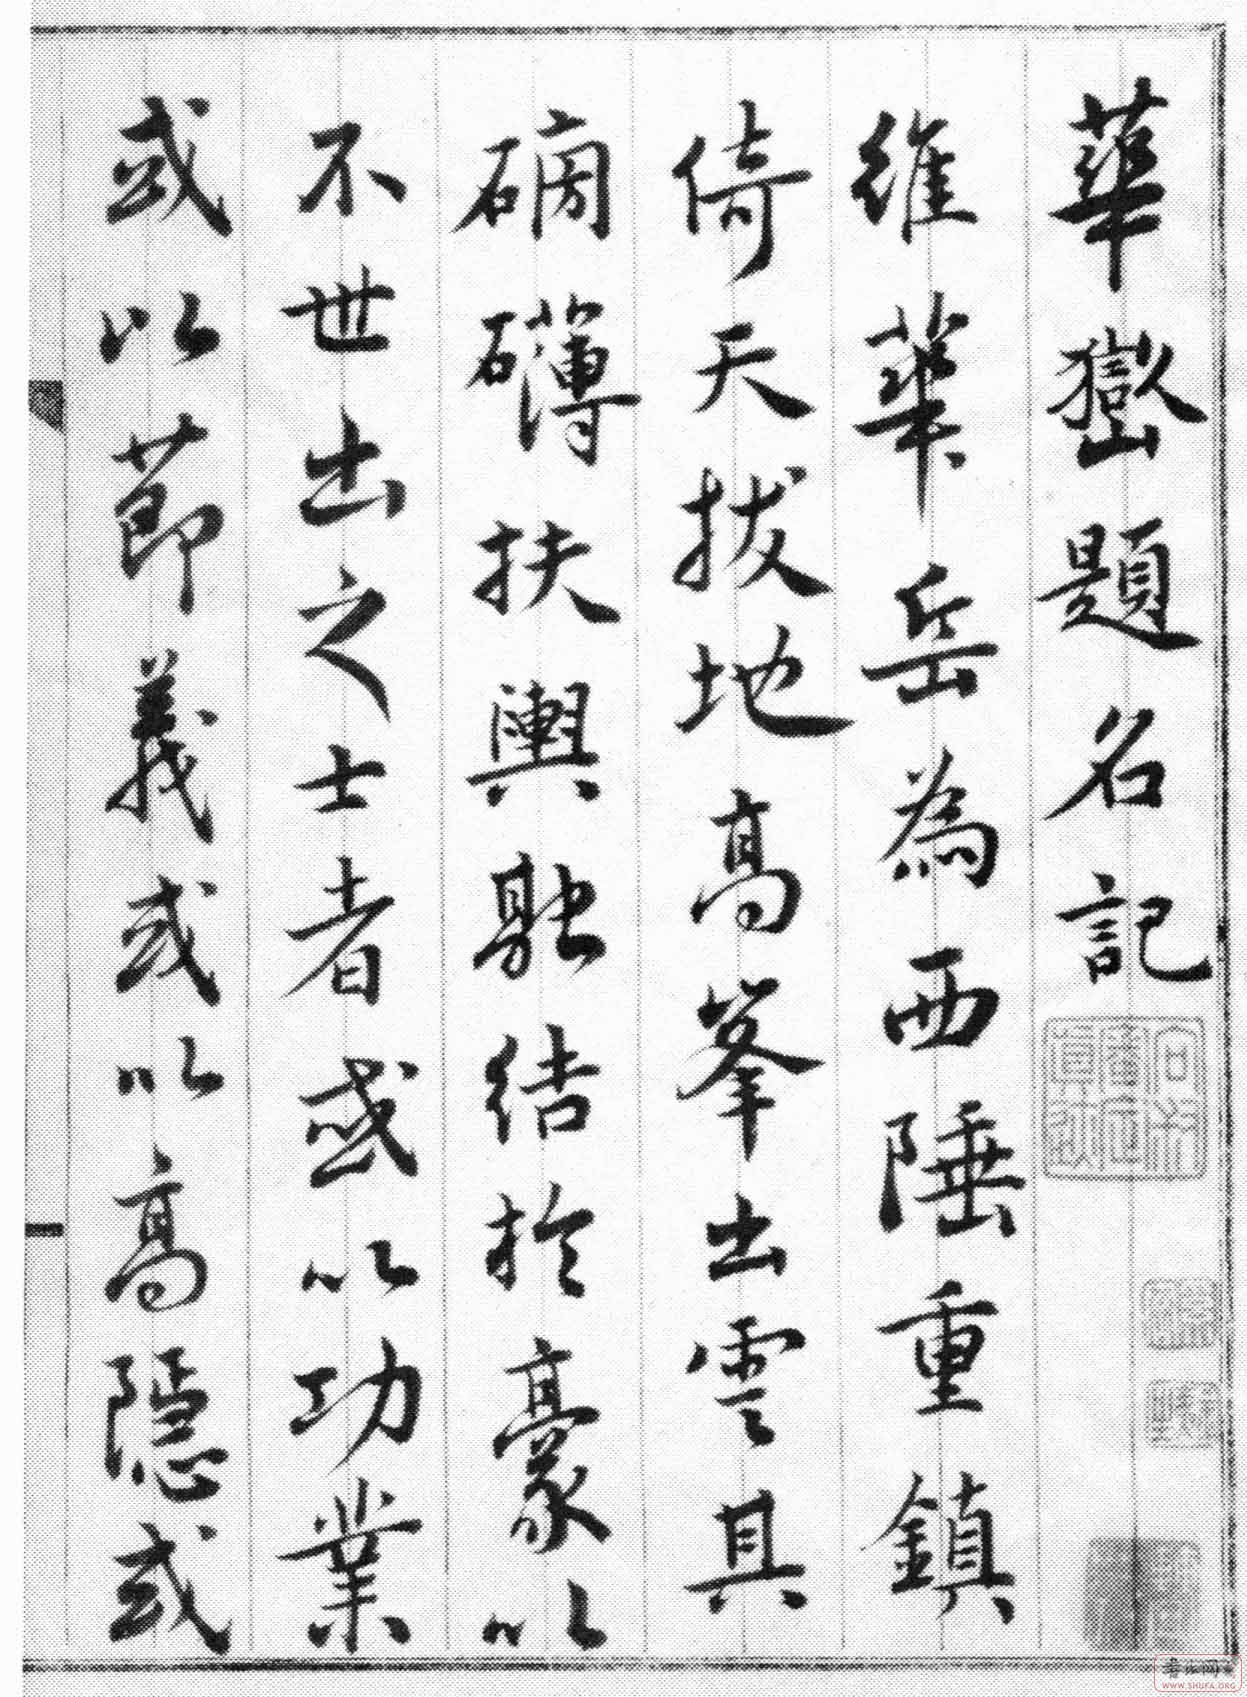 華嶽題名記
維華岳為西陲重鎮
倚天拔地高峯出雲具
磅礴扶輿融結於豪以
不世出之士者或以功業
或以節義或以高隱或
書法网
WWW.SHUFA.ORG